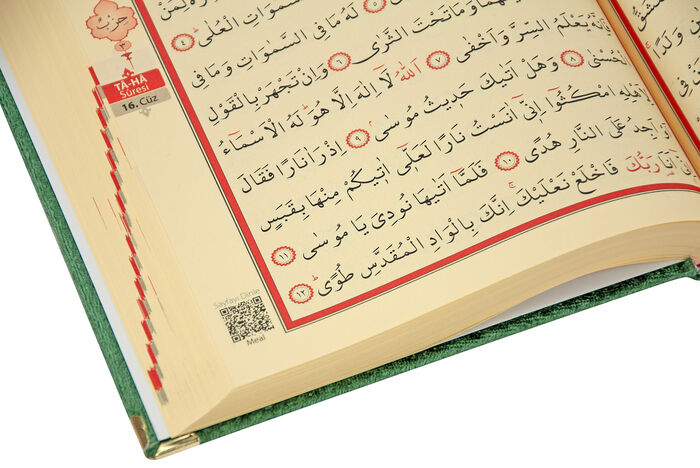 حزب
٣
TÂ-HÂ
Sûresi
16. Cüz
السَّمٰوَاتِ الْعُلٰىۜ ٤
٥ لَهُ مَا فِي السَّمٰوَاتِ وَمَا فِي
بَيْنَهُمَا وَمَا تَحْتَ الثَّرٰى ٦ وَاِنْ تَجْهَرْ بِالْقَوْلِ
فَاِنَّهُ يَعْلَمُ السِّرَّ وَاَخْفٰى ٧ اَللّٰهُ لَٓا اِلٰهَ اِلَّا هُوَۜ لَهُ الْاَسْمَٓاءُ
الْحُسْنٰى ٨ وَهَلْ اَتٰيكَ حَد۪يثُ مُوسٰىۢ ٩ اِذْ رَاٰ نَارًا فَقَالَ
لِاَهْلِهِ امْكُثُٓوا اِنّ۪ٓي اٰنَسْتُ نَارًا لَعَلّ۪ٓي اٰت۪يكُمْ مِنْهَا بِقَبَسٍ
اَوْ اَجِدُ عَلَى النَّارِ هُدًى ١٠ فَلَمَّٓا اَتٰيهَا نُودِيَ يَا مُوسٰى ١١
اِنّ۪ٓي اَنَا۬ رَبُّكَ فَاخْلَعْ نَعْلَيْكَۚ اِنَّكَ بِالْوَادِ الْمُقَدَّسِ طُوًىۜ ١٢
Sayfayı Dinle
Meal